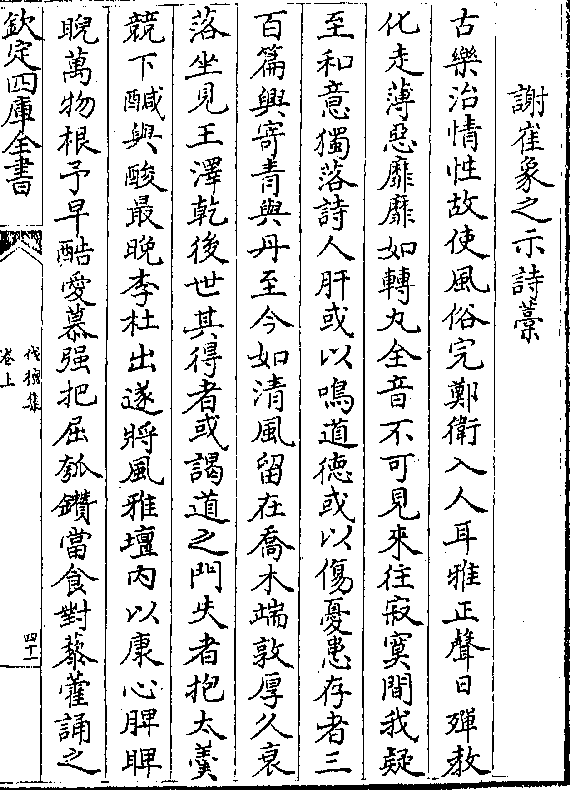 謝崔象之示詩藁
古樂治情性故使風俗完鄭衛入人耳雅正聲日殫教
化走薄惡靡靡如轉丸全音不可見來往寂寞間我疑
至和意獨落詩人肝或以鳴道德或以傷憂患存者三
百篇興寄青與丹至今如清風留在喬木端敦厚久衰
落坐見王澤乾後世其得者或謁道之門失者抱太羮
競下醎與酸最晩李杜出遂將風雅壇内以康心脾睥
睨萬物根予早酷愛慕强把屈瓠鑚當食對藜藿誦之
欽定四庫全書
伐檀集
卷上
四十一